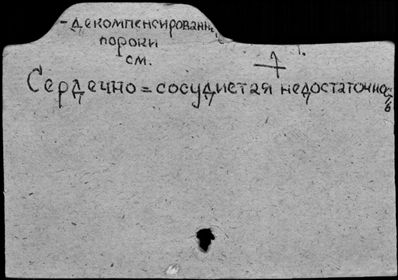 - декомпенсированн
пороки
см.
Сердечно = сосудистая недостаточность